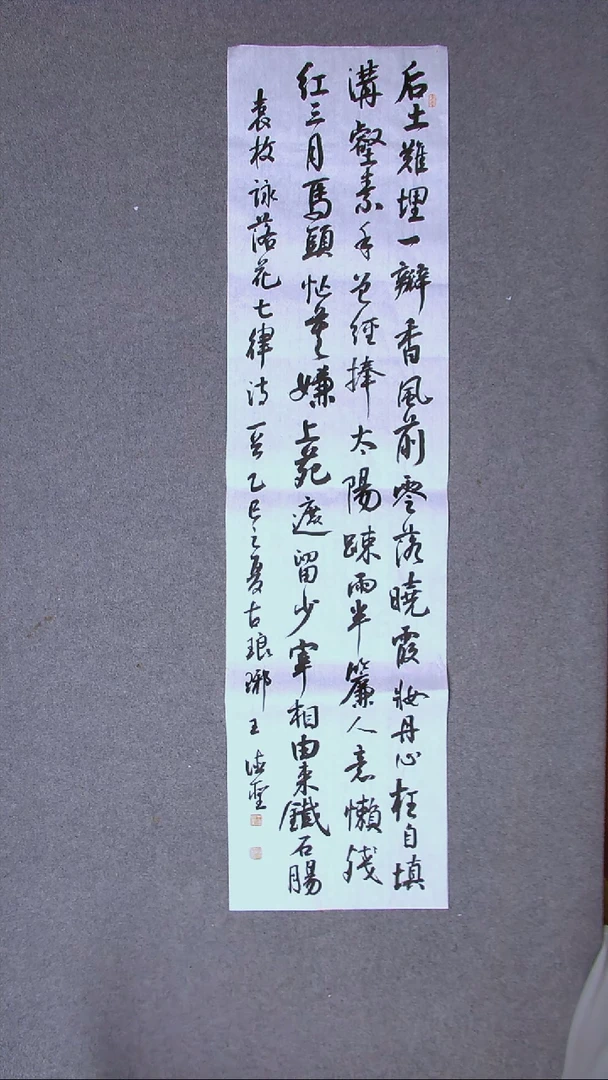 后土難埋一瓣香風前零落曉霞妝丹心枉自填
溝壑素手曾經捧太陽踈雨半簾人意懶殘
紅三月馬頭忙莫嫌上苑遮留少宰相由來鐵石腸
袁枚詠落花七律诗一首乙巳之夏古琅琊王